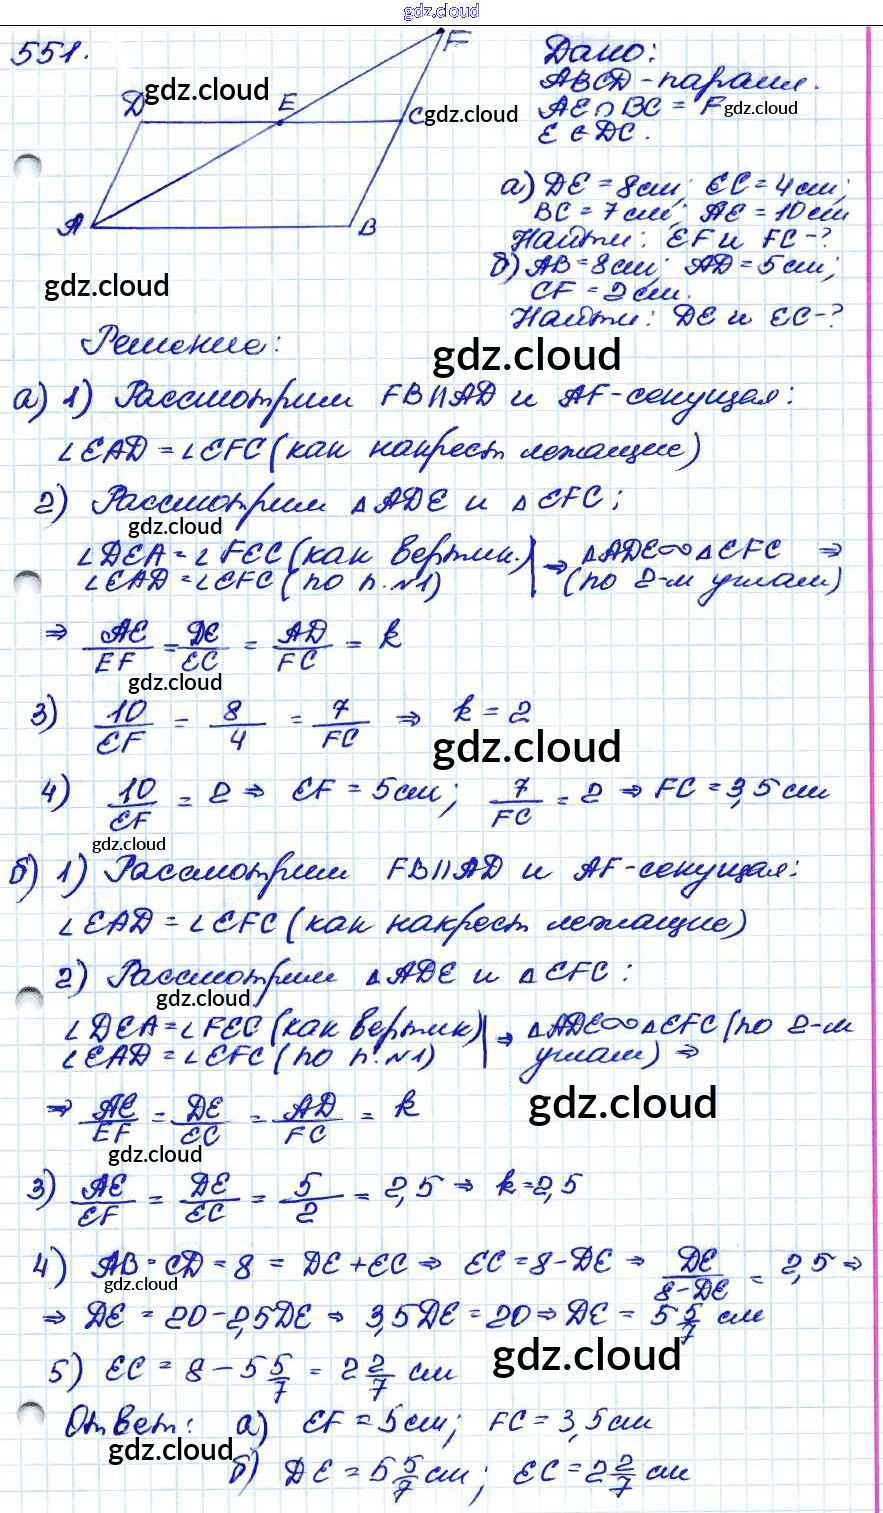 gdz.cloud
551.
F
Дано:
gdz.cloud
ABCD - паралл.
D
E
C
gdz.cloud
AE ∩ BC = F
gdz.cloud
E ∈ DC.
а) DE = 8 см; EC = 4 см;
BC = 7 см; AE = 10 см
A
B
Найти: EF и FC - ?
б) AB = 8 см; AD = 5 см;
gdz.cloud
CF = 2 см.
Найти: DE и EC - ?
Решение:
gdz.cloud
а) 1) Рассмотрим FB || AD и AF - секущая:
∠EAD = ∠EFC (как накрест лежащие)
2) Рассмотрим △ADE и △EFC;
gdz.cloud
∠DEA = ∠FEC (как вертик.) | ⇒ △ADE ∞ △EFC ⇒
∠EAD = ∠EFC (по п. №1) | (по 2-м углам)
⇒ AE/EF = DE/EC = AD/FC = k
gdz.cloud
3) 10/EF = 8/4 = 7/FC ⇒ k = 2
gdz.cloud
4) 10/EF = 2 ⇒ EF = 5 см; 7/FC = 2 ⇒ FC = 3,5 см
gdz.cloud
б) 1) Рассмотрим FB || AD и AF - секущая:
∠EAD = ∠EFC (как накрест лежащие)
2) Рассмотрим △ADE и △EFC:
gdz.cloud
∠DEA = ∠FEC (как вертик) | ⇒ △ADE ∞ △EFC (по 2-м
∠EAD = ∠EFC (по п. №1) | углам) ⇒
⇒ AE/EF = DE/EC = AD/FC = k
gdz.cloud
gdz.cloud
3) AE/EF = DE/EC = 5/2 = 2,5 ⇒ k = 2,5
4) AB = CD = 8 = DE + EC ⇒ EC = 8 - DE ⇒ DE/8-DE = 2,5 ⇒
gdz.cloud
⇒ DE = 20 - 2,5DE ⇒ 3,5DE = 20 ⇒ DE = 5 5/7 см
gdz.cloud
5) EC = 8 - 5 5/7 = 2 2/7 см
Ответ: а) EF = 5 см; FC = 3,5 см
gdz.cloud
б) DE = 5 5/7 см; EC = 2 2/7 см